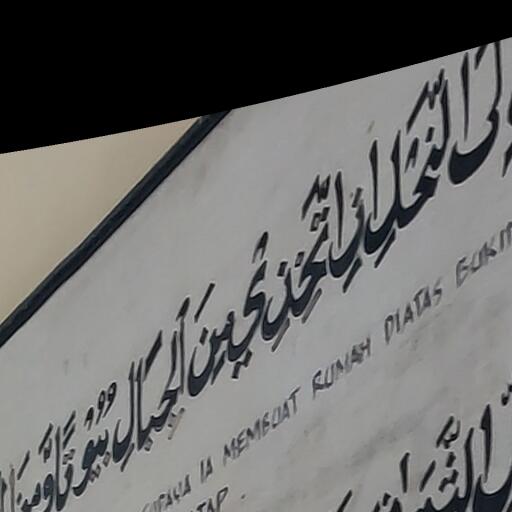 لَى النَّحْلِ أَنِ اتَّخِذِي مِنَ الْجِبَالِ بُيُوتًا وَمِنَ
SUPAYA IA MEMBUAT RUMAH DIATAS BUKIT
TAP